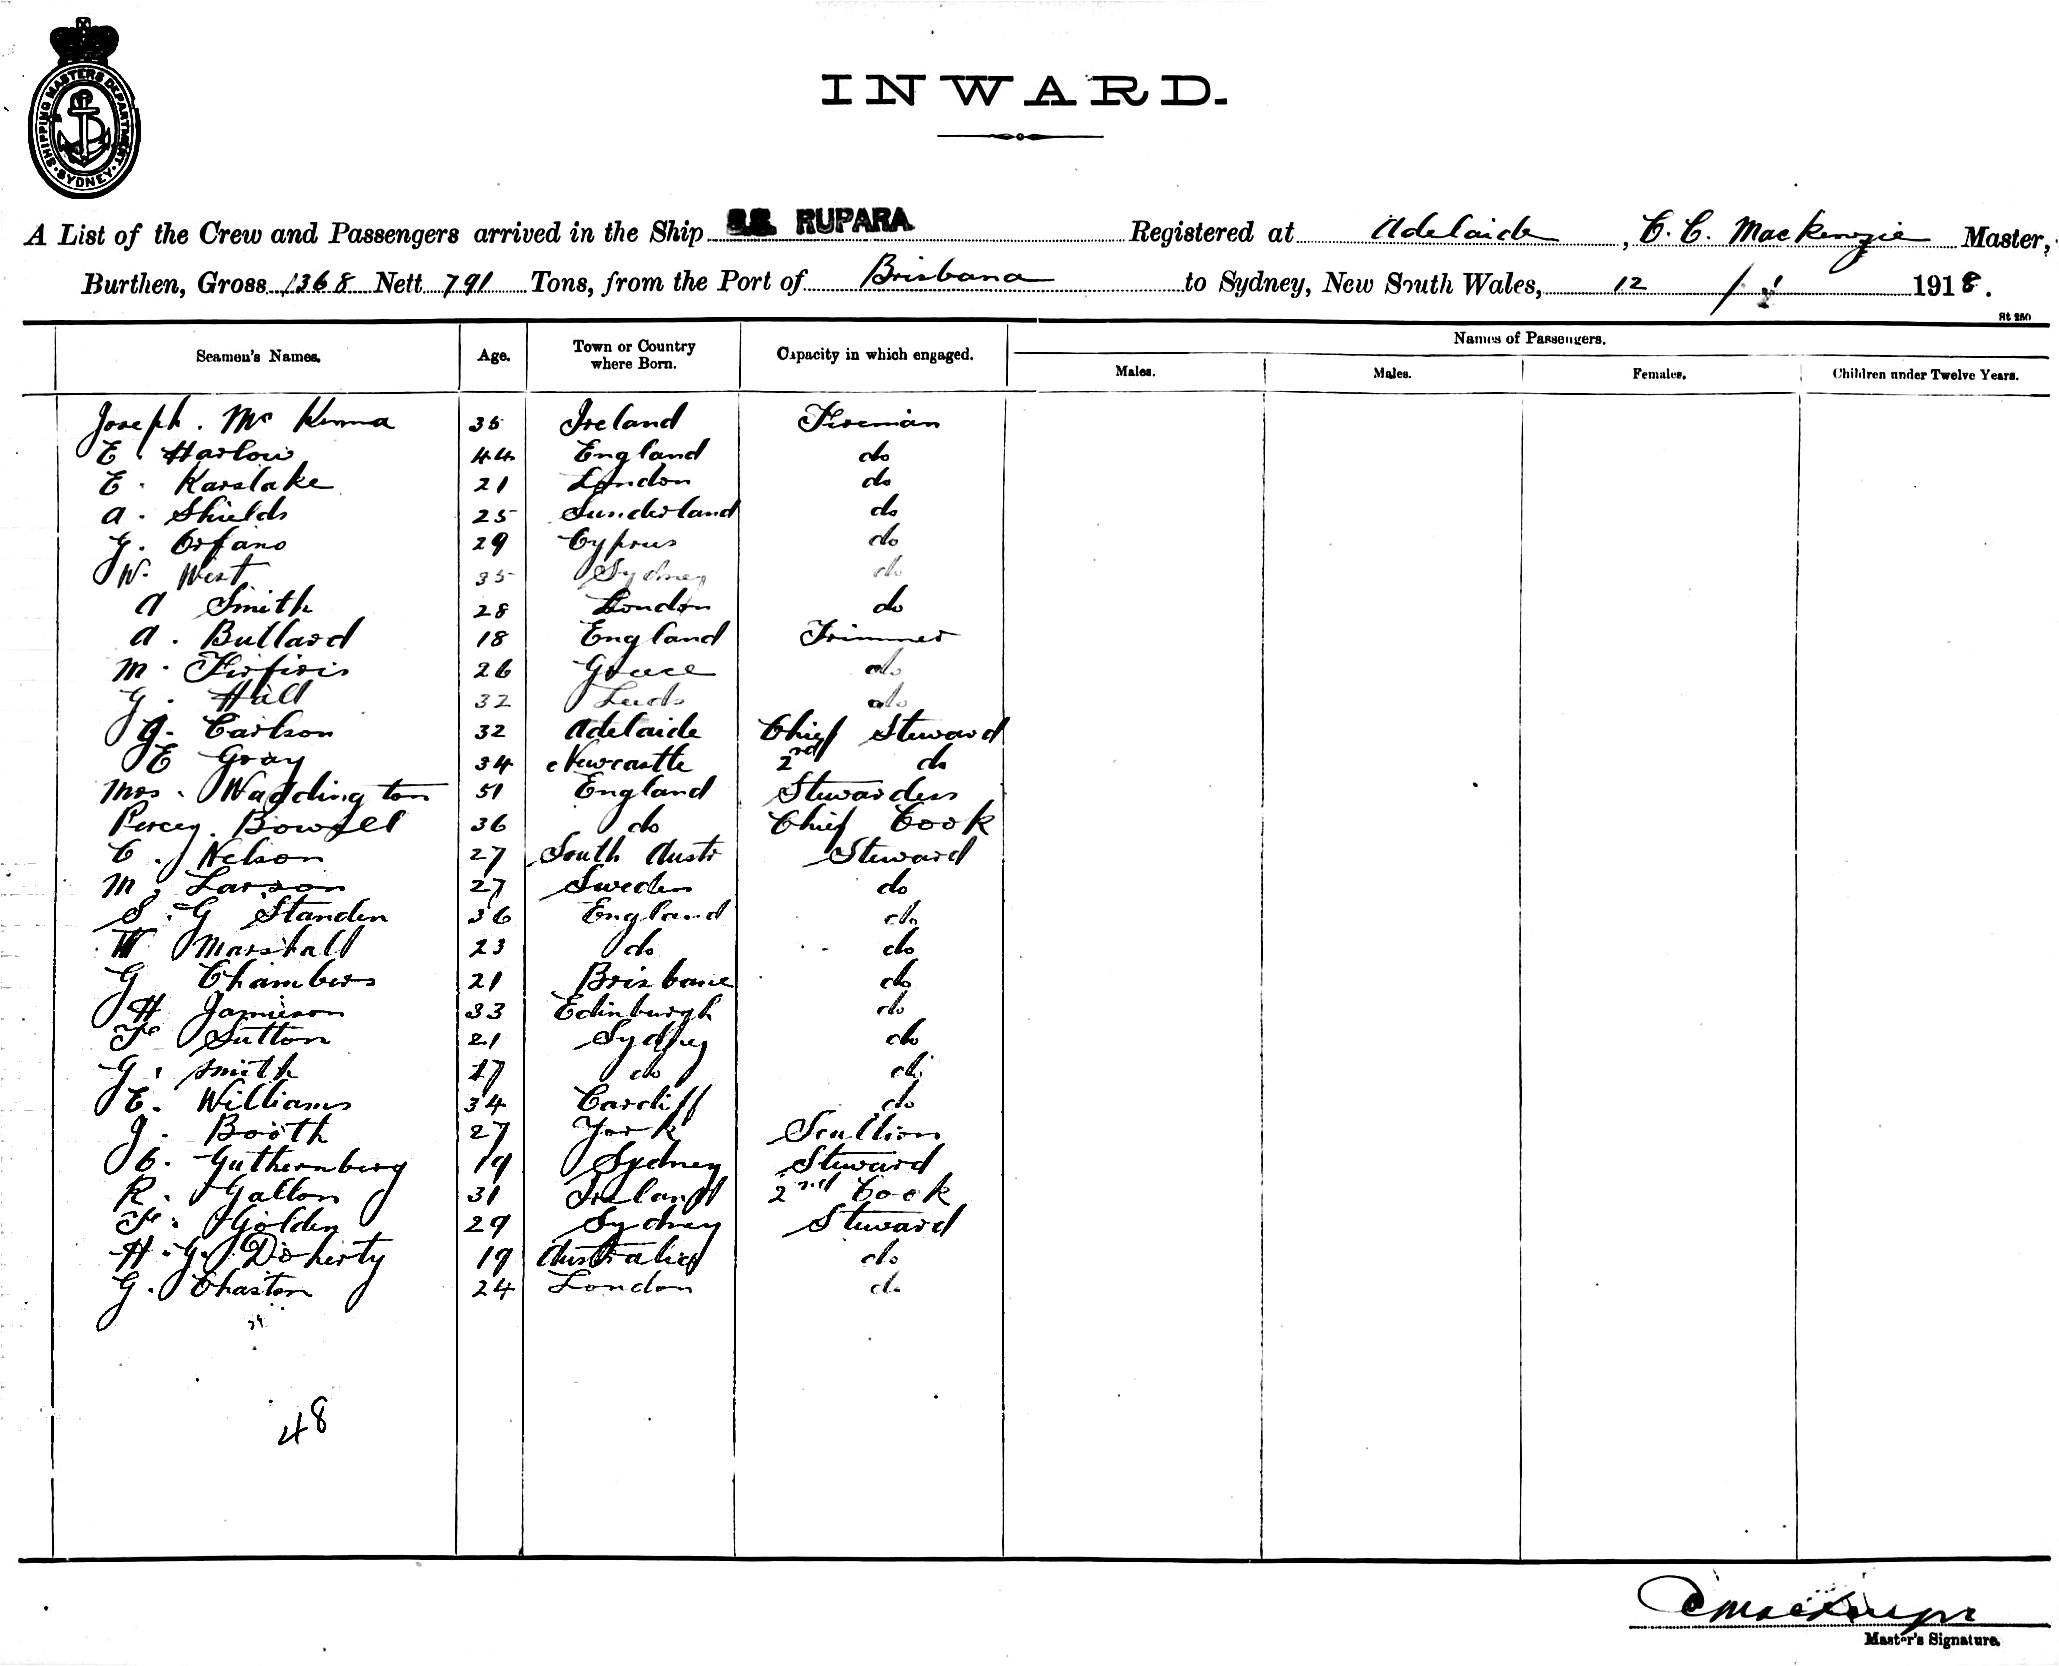 SHIPPING MASTERS DEPARTMENT · SYDNEY ·
INWARD.
A List of the Crew and Passengers arrived in the Ship S.S. RUPARA Registered at Adelaide, C. C. Mackenzie Master,
Burthen, Gross 1368 Nett 791 Tons, from the Port of Brisbane to Sydney, New South Wales, 12 / 1 1918.
St 250
Seamen's Names. Age. Town or Country where Born. Capacity in which engaged. Names of Passengers.
Males. Males. Females. Children under Twelve Years.
Joseph. Mc Kenna 35 Ireland Fireman
E. Harlow 44 England do
E. Karslake 21 London do
A. Shields 25 Sunderland do
G. Orfano 29 Cyprus do
W. West 35 Sydney do
A Smith 28 London do
A. Bullard 18 England Trimmer
M. Firfiris 26 Greece do
G. Hall 32 Leeds do
G. Carlson 32 Adelaide Chief Steward
E Gray 34 Newcastle 2nd do
Mrs. Waddington 51 England Stewardess
Percey. Bowsell 36 do Chief Cook
C. Nelson 27 South Austr Steward
M. Larson 27 Sweden do
S. G Standen 36 England do
W Marshall 23 do do
G Chambers 21 Brisbane do
H Jamieson 33 Edinburgh do
F Sutton 21 Sydney do
G. Smith 17 do do
E. Williams 34 Cardiff do
J. Booth 27 York Scullion
C. Guthernberg 19 Sydney Steward
R. Galton 31 Ireland 2nd Cook
F. Golden 29 Sydney Steward
H. G. Doherty 19 Australia do
G. Chaston 24 London do
29
48
C Mackenzie
Master's Signature.